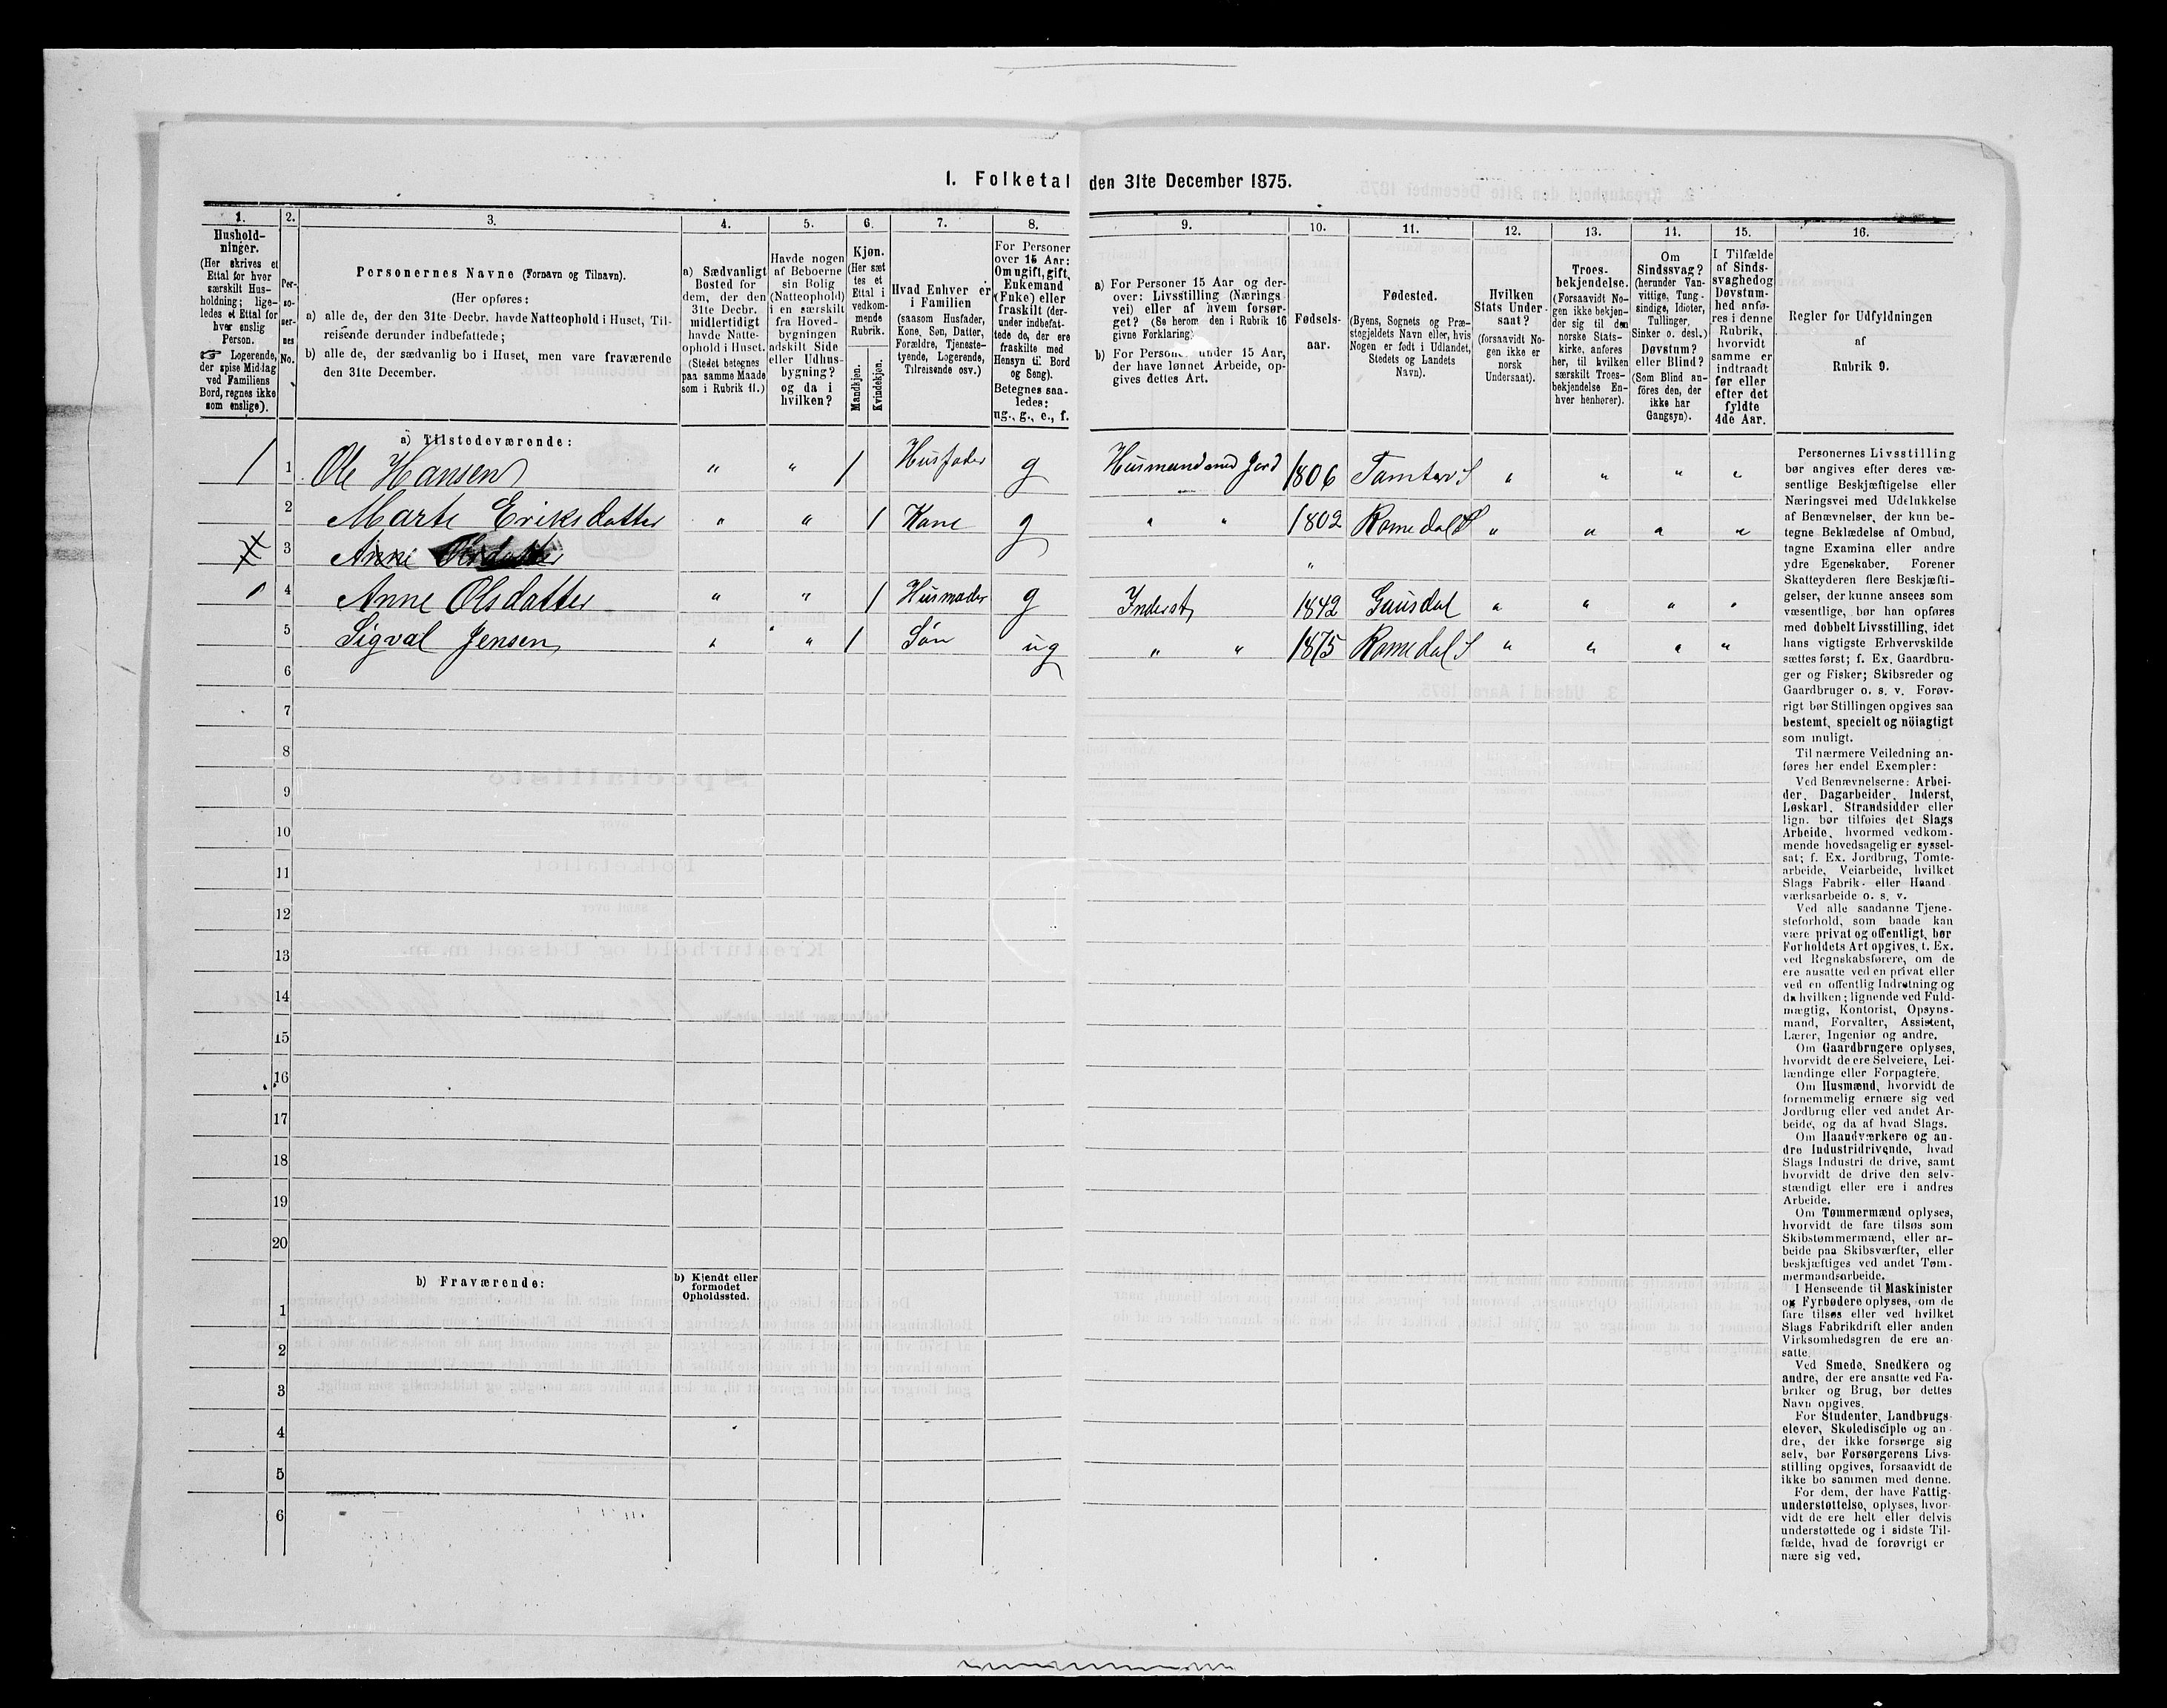 I. Folketal den 31te December 1875.
1. 2. 3. 4. 5. 6. 7. 8. 9. 10. 11. 12. 13. 11. 15. 16.
Hushold-
ninger.
(Her skrives et
Ettal for hver
særskilt Hus-
holdning; lige-
ledes et Ettal for
hver enslig
Person.
☞ Logerende,
der spise Middag
ved Familiens
Bord, regnes ikke
som enslige).
Per-
so-
ner-
nes
No.
Personernes Navne (Fornavn og Tilnavn).
(Her opføres:
a) alle de, der den 31te Decbr. havde Natteophold i Huset, Til-
reisende derunder indbefattede;
b) alle de, der sædvanlig bo i Huset, men vare fraværende
den 31te December.
a) Sædvanligt
Bosted for
dem, der den
31te Decbr.
midlertidigt
havde Natte-
ophold i Huset.
(Stedet betegnes
paa samme Maade
som i Rubrik 11.)
Havde nogen
af Beboerne
sin Bolig
(Natteophold)
i en særskilt
fra Hoved-
bygningen
adskilt Side
eller Udhus-
bygning?
og da i
hvilken?
Kjøn.
(Her sæt
tes et
Ettal i
vedkom-
mende
Rubrik.
Mandkjøn.
Kvindekjøn.
Hvad Enhver er
i Familien
(saasom Husfader,
Kone, Søn, Datter,
Forældre, Tjeneste-
tyende, Logerende,
Tilreisende osv.)
For Personer
over 15 Aar:
Om ugift, gift,
Enkemand
(Enke) eller
fraskilt (der-
under indbefat-
tede de, der ere
fraskilte med
Hensyn til Bord
og Seng).
Betegnes saa-
ledes:
ug., g., e., f.
a) For Personer 15 Aar og der-
over: Livsstilling (Nærings
vei) eller af hvem forsør-
get? (Se herom den i Rubrik 16
givne Forklaring)
b) For Personer under 15 Aar,
der have lønnet Arbeide, op-
gives dettes Art.
Fødsels-
aar.
Fødested.
(Byens, Sognets og Præ-
stegjeldets Navn eller, hvis
Nogen er født i Udlandet,
Stedets og Landets
Navn).
Hvilken
Stats Under-
saat?
(forsaavidt No-
gen ikke er
norsk
Undersaat).
Troes-
bekjendelse.
(Forsaavidt No-
gen ikke bekjen-
der sig til den
norske Stats-
kirke, anføres
her, til hvilken
særskilt Troes-
bekjendelse En-
hver henhører).
Om
Sindssvag?
(herunder Van-
vittige, Tung-
sindige, Idioter,
Tullinger,
Sinker o. desl.)
Døvstum?
eller Blind?
(Som Blind an-
föres den, der
ikke har
Gangsyn).
I Tilfælde
af Sinds-
svaghed og
Døvstum-
hed anfø-
res i denne
Rubrik,
hvorvidt
samme er
indtraadt
før eller
efter det
fyldte
4de Aar.
Regler for Udfyldningen
af
Rubrik 9.
a) Tilstedeværende:
1 1 Ole Hansen " " 1 Husfader g Husmand med Jord 1806 " " " "
2 Marte Eriksdatter " " 1 Kone g " " 1802 Romedal " " " "
3 Anne Olsdatter g "
1 4 Anne Olsdatter " " 1 Husmoder g Inderst 1842 Gausdal " " " "
5 Sigval Jensen " " 1 Søn ug " " 1875 Romedal S " " " "
6
7
8
9
10
11
12
13
14
15
16
17
18
19
20
b) Fraværende:
b) Kjendt eller
formodet
Opholdssted.
1
2
3
4
5
6
Personernes Livsstilling
bør angives efter deres væ-
sentlige Beskjæftigelse eller
Næringsvei med Udelukkelse
af Benævnelser, der kun be-
tegne Beklædelse af Ombud,
tagne Examina eller andre
ydre Egenskaber. Forener
Skatteyderen flere Beskjæfti-
gelser, der kunne ansees som
væsentlige, bør han opføres
med dobbelt Livsstilling, idet
hans vigtigste Erhvervskilde
sættes først; f. Ex. Gaardbru-
ger og Fisker; Skibsreder og
Gaardbruger o. s. v. Forøv-
rigt bør Stillingen opgives saa
bestemt, specielt og nöiagtigt
som muligt.
Til nærmere Veiledning an-
føres her endel Exempler:
Ved Benævnelserne: Arbei-
der, Dagarbeider, Inderst,
Løskarl, Strandsidder eller
lign. bør tilføies det Slags
Arbeide, hvormed vedkom-
mende hovedsagelig er syssel-
sat; f. Ex. Jordbrug, Tomte-
arbeide, Veiarbeide, hvilket
Slags Fabrik- eller Haand
værksarbeide o. s. v.
Ved alle saadanne Tjene-
steforhold, som baade kan
være privat og offentligt, bør
Forholdets Art opgives, t. Ex.
ved Regnskabsførere, om de
ere ansatte ved en privat eller
ved en offentlig Indretning og
da hvilken; lignende ved Fuld-
mægtig, Kontorist, Opsyns-
mand, Forvalter, Assistent,
Lærer, Ingeniør og andre.
Om Gaardbrugere oplyses,
hvorvidt de ere Selveiere, Lei-
lændinge eller Forpagtere.
Om Husmænd, hvorvidt de
fornemmelig ernære sig ved
Jordbrug eller ved andet Ar-
beide, og da af hvad Slags.
Om Haandværkere og an-
dre Industridrivende, hvad
Slags Industri de drive, samt
hvorvidt de drive den selv-
stændigt eller ere i andres
Arbeide.
Om Tømmermænd oplyses,
hvorvidt de fare tilsøs som
Skibstømmermænd, eller ar-
beide paa Skibsværfter, eller
beskjæftiges ved andet Tøm-
mermandsarbeide.
I Henseende til Maskinister
og Fyrbødere oplyses, om de
fare tilsøs eller ved hvilket
Slags Fabrikdrift eller anden
Virksomhedsgren de ere an-
satte.
Ved Smede, Snedkere og
andre, der ere ansatte ved Fa-
briker og Brug, bør dettes
Navn opgives.
For Studenter, Landbrugs-
elever, Skoledisciple og an-
dre, der ikke forsørge sig
selv, bør Forsørgerens Livs-
stilling opgives, forsaavidt de
ikke bo sammen med denne.
For dem, der have Fattig-
understøttelse, oplyses, hvor-
vidt de ere helt eller delvis
understøttede og i sidste Til-
fælde, hvad de forøvrigt er
nære sig ved.